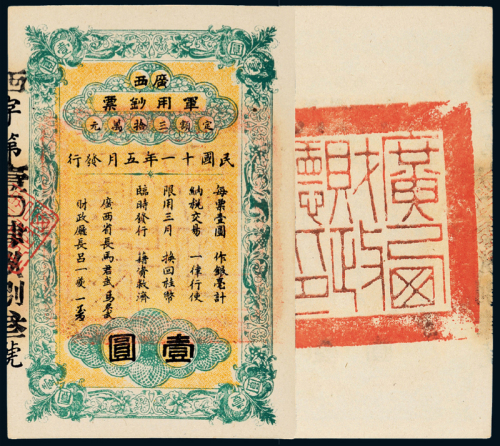 廣西
軍用鈔票
定額三拾萬元
民國十一年五月發行
每票壹圓 作銀毫計
納稅交易 一律行使
限用三月 換回桂幣
臨時發行 藉資救濟
廣西省長馬君武
財政廳長呂一夔
壹圓
西字第 號
廣西財政廳印